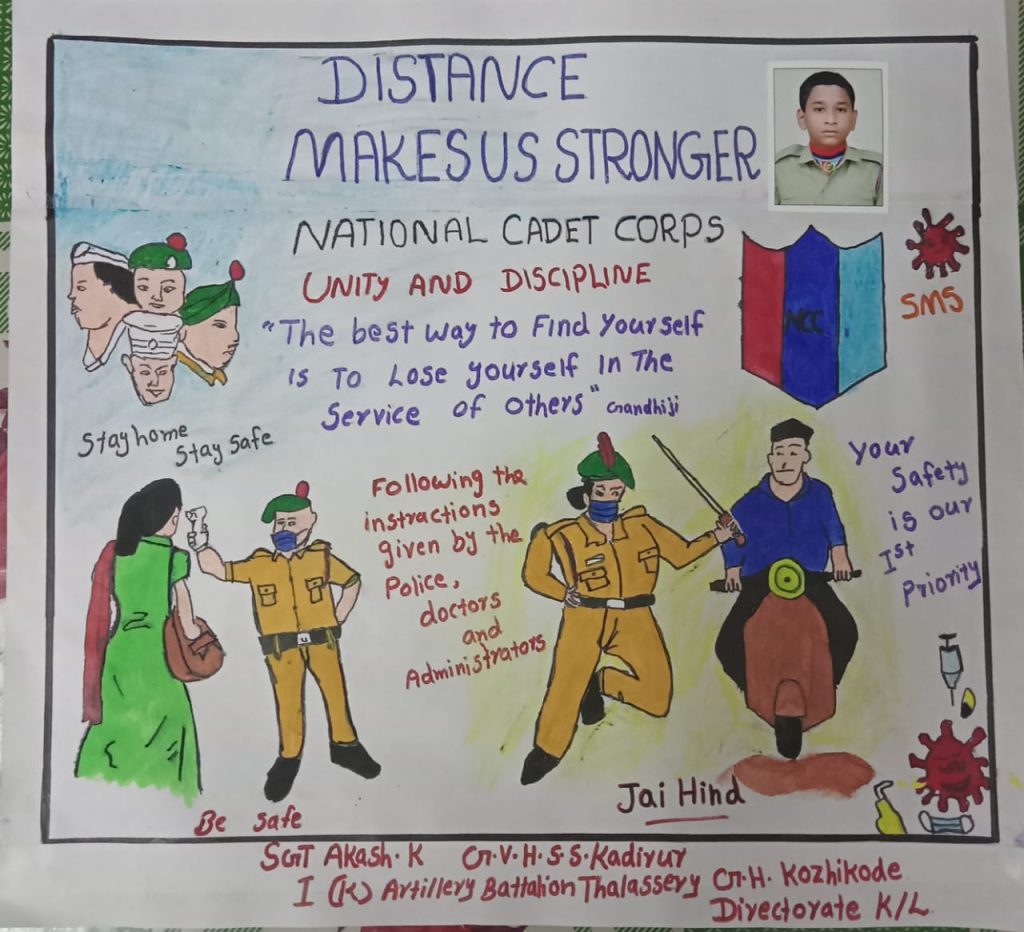 DISTANCE
MAKES US STRONGER
NATIONAL CADET CORPS
UNITY AND DISCIPLINE
"The best way to Find Yourself
is To Lose yourself In The
Service of Others" Gandhiji
NCC
SMS
Stay home
Stay Safe
Following the
instractions
given by the
Police,
doctors
and
Administrators
Your
Safety
is our
Ist
Priority
Jai Hind
Be Safe
SGT Akash.K G.V.H.S.S.Kadirur
I (K) Artillery Battalion Thalassery G.H. Kozhikode
Directorate K/L